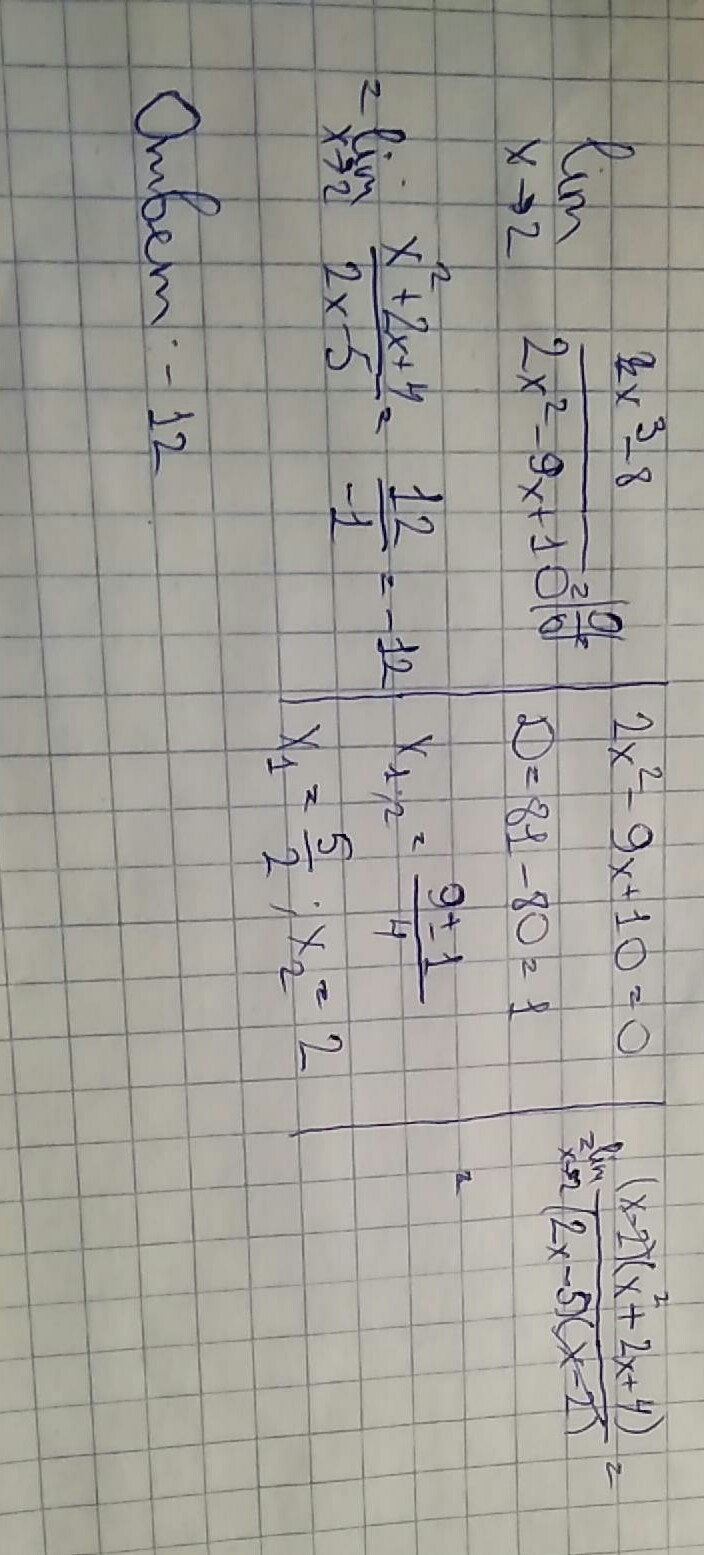 lim x→2 (x³-8)/(2x²-9x+10) = |0/0| =
2x²-9x+10=0
D=81-80=1
x₁,₂ = (9±1)/4
x₁ = 5/2 ; x₂ = 2
= lim x→2 ((x-2)(x²+2x+4))/((2x-5)(x-2)) =
=
= lim x→2 (x²+2x+4)/(2x-5) = 12/-1 = -12
Ответ: -12